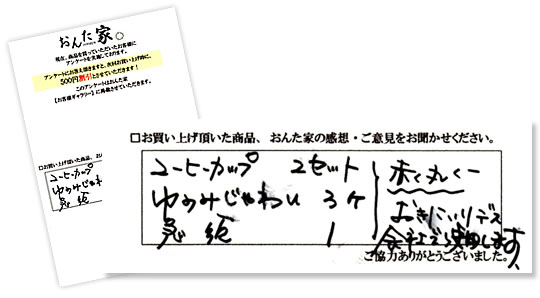 おんた家
現在、商品を買っていただいたお客様に
アンケートを実施しております。
アンケートにお答え頂きますと、次回お買い上げ時に、
500円割引とさせていただきます!
このアンケートはおんた家
【お客様ギャラリー】に掲載させていただきます。
□お買い上げ頂いた商品、
コーヒーカップ
ゆのみじゃわん
急須
□お買い上げ頂いた商品、おんた家の感想・ご意見をお聞かせください。
コーヒーカップ 2セット
ゆのみじゃわん 3ケ
急須 1
赤く丸くー
おきにいりデス
使用します。
ご協力ありがとうございました。